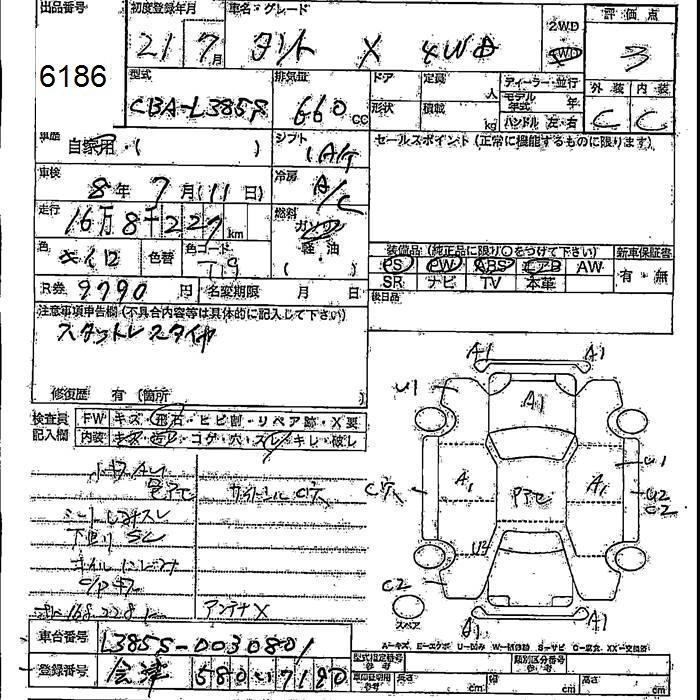 出品番号 初度登録年月 車名・グレード 評価点
6186 21 7月 タント X 4WD 2WD 4WD 3
型式 排気量 ドア 定員 人 ディーラー・並行 外装 内装
CBA-L385S 660cc 形状 積載 kg モデル年式 年 C C
ハンドル 左・右
車歴 自家用・( ) シフト IAT セールスポイント(正常に機能するものに限ります)
車検 8年7月(11日) 冷房 A/C
走行 16万8千227km 燃料 ガソリン 軽・油 ( )
色 色替 色コード T19
装備品(純正品に限り○をつけて下さい) 新車保証書
PS PW ABS エアB AW 有・無
SR ナビ TV 本革
R券 9790円 名変期限 月 日 後日品
注意事項申告欄(不具合内容等は具体的に記入して下さい)
スタットレスタイヤ
修復歴 有(箇所 )
検査員記入欄 FW キズ・飛石・ヒビ割・リペア跡・X要
内装 キズ・コゲ・穴・スレ・キレ・破レ
下廻り SC
アンテナX
A1 A1
U1 A1
A1 A1 U1
U2
C2
U2
C2 スペア
A1 A1
車台番号 L385S-0030801
登録番号 会津 580 い 7180
A-キズ E-エクボ U-凹み W-補修跡 S-サビ C-腐食 XX-交換済
型式指定番号 参考 類別区分番号 参考
長さ cm 幅 cm 高さ cm